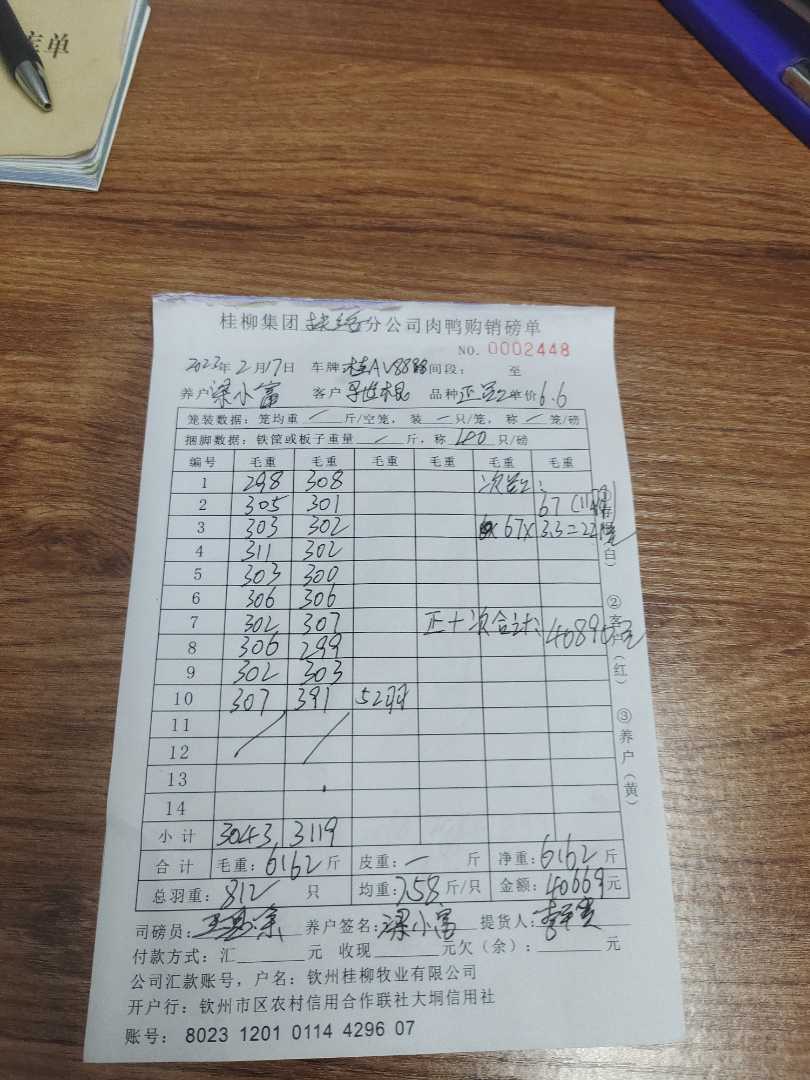 库单
桂柳集团 分公司肉鸭购销磅单
NO. 0002448
2023年2月17日 车牌:桂AV8888 间段: 至
养户 梁小富 客户 品种 正 2 单价 6.6
笼装数据:笼均重 / 斤/空笼,装 / 只/笼,称 / 笼/磅
捆脚数据:铁筐或板子重量 / 斤,称 100 只/磅
编号 毛重 毛重 毛重 毛重 毛重 毛重
1 298 308 次
2 305 301 67
3 303 302 67× 3.3=22
4 311 302
5 303 300
6 306 306
7 302 307 正十次合计: 40890元
8 306 299
9 302 303
10 307 391 52羽
11
12
13
14
小计 3043 3119
合计 毛重:6162斤 皮重:一 斤 净重:6162斤
总羽重:812 只 均重:7.58斤/只 金额:40669元
司磅员: 养户签名:梁小富 提货人:
付款方式:汇 元 收现 元欠(余): 元
公司汇款账号,户名:钦州桂柳牧业有限公司
开户行:钦州市区农村信用合作联社大垌信用社
账号:8023 1201 0114 4296 07
①存 (白)
②客户(红)
③养户(黄)